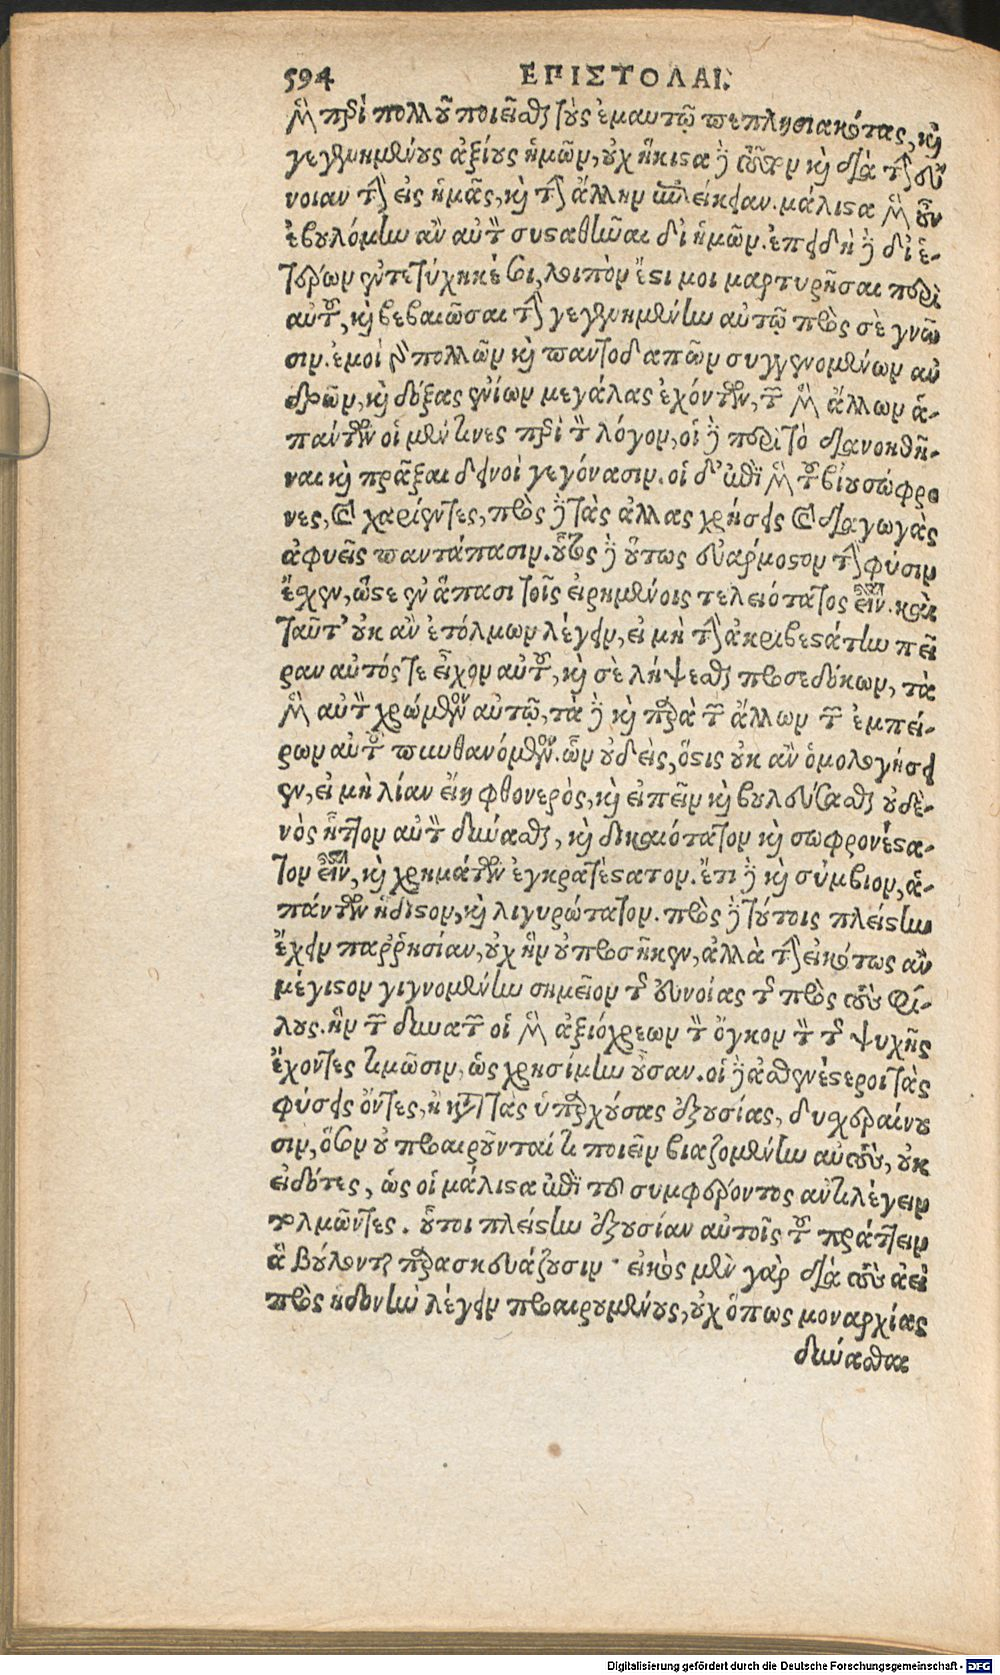 594 ΕΠΙΣΤΟΛΑΙ.
μὲν περὶ πολλοῦ ποιεῖσθαι τοὺς ἐμαυτῷ πεπλησιακότας, καὶ
γεγενημένους ἀξίους ἡμῶν, οὐχ ἥκιστα δὲ τοῦτον καὶ διὰ τὴν εὔ
νοιαν τὴν εἰς ἡμᾶς, καὶ τὴν ἄλλην ἐπιείκειαν. μάλιστα μὲν οὖν
ἐβουλόμην ἂν αὐτὸν συσταθῆναι δι ἡμῶν. ἐπειδὴ δὲ δι ἑ-
τέρων ἐντετύχηκέ σοι, λοιπὸν ἔστι μοι μαρτυρῆσαι περὶ
αὐτοῦ, καὶ βεβαιῶσαι τὴν γεγενημένην αὐτῷ πρὸς σὲ γνῶ
σιν. ἐμοὶ γὰρ πολλῶν καὶ παντοδαπῶν συγγενομένων ἀν
δρῶν, καὶ δόξας ἐνίων μεγάλας ἐχόντων, τῶν μὲν ἄλλων ἁ-
πάντων οἱ μέν τινες περὶ τὸν λόγον, οἱ δὲ περὶ τὸ διανοηθῆ-
ναι καὶ πρᾶξαι δεινοὶ γεγόνασιν. οἱ δ' ἐπὶ μὲν τοῦ βίου σώφρο
νες, καὶ χαρίεντες, πρὸς δὲ τὰς ἄλλας χρήσεις καὶ διαγωγὰς
ἀφυεῖς παντάπασιν. οὗτος δὲ οὕτως εὐάρμοστον τὴν φύσιν
ἔχεν, ὥστε ἐν ἅπασι τοῖς εἰρημένοις τελειότατος εἶναι. καὶ
ταῦτ' οὐκ ἂν ἐτόλμων λέγειν, εἰ μὴ τὴν ἀκριβεστάτην πεῖ
ραν αὐτός τε εἶχον αὐτοῦ, καὶ σὲ λήψεσθαι προσεδόκων, τὰ
μὲν αὐτὸς χρώμενον αὐτῷ, τὰ δὲ καὶ παρὰ τῶν ἄλλων τῶν ἐμπεί-
ρων αὐτοῦ πυνθανόμενον. ὧν οὐδεὶς, ὅστις οὐκ ἂν ὁμολογήσει
εν, εἰ μὴ λίαν εἴη φθονερὸς, καὶ εἰπεῖν καὶ βουλεύσασθαι οὐδε-
νὸς ἧττον αὐτὸν δύνασθαι, καὶ δικαιότατον καὶ σωφρονέστα-
τον εἶναι, καὶ χρημάτων ἐγκρατέστατον. ἔτι δὲ καὶ σύμβιον, ἁ-
πάντων ἥδιστον, καὶ λιγυρώτατον. πρὸς δὲ τούτοις πλείστην
ἔχειν παῤῥησίαν, οὐχ ἣν οὐ προσῆκεν, ἀλλὰ τὴν εἰκότως ἂν
μέγιστον γιγνομένην σημεῖον τῆς εὐνοίας τῆς πρὸς τοὺς φί-
λους. ἣν τῶν δυνατῶν οἱ μὲν ἀξιόχρεων τὸν ὄγκον τὸν τῆς ψυχῆς
ἔχοντες τιμῶσιν, ὡς χρησίμην οὖσαν. οἱ δὲ ἀσθενέστεροι τὰς
φύσεις ὄντες, ἢ κατὰ τὰς ὑπαρχούσας ἐξουσίας, δυσχεραίνου
σιν, ὅσον οὐ προαιροῦνταί τι ποιεῖν βιαζομένην αὐτοὺς, οὐκ
εἰδότες, ὡς οἱ μάλιστα ἐπὶ τοῦ συμφέροντος ἀντιλέγειν
τολμῶντες. οὗτοι πλείστην ἐξουσίαν αὐτοῖς τοῦ πράττειν
ἃ βούλονται παρασκευάζουσιν. εἰκὸς μὲν γὰρ διὰ τοὺς ἀεὶ
πρὸς ἡδονὴν λέγειν προαιρουμένους, οὐχ ὅπως μοναρχίας
δύνασθαι
Digitalisierung gefördert durch die Deutsche Forschungsgemeinschaft - DFG